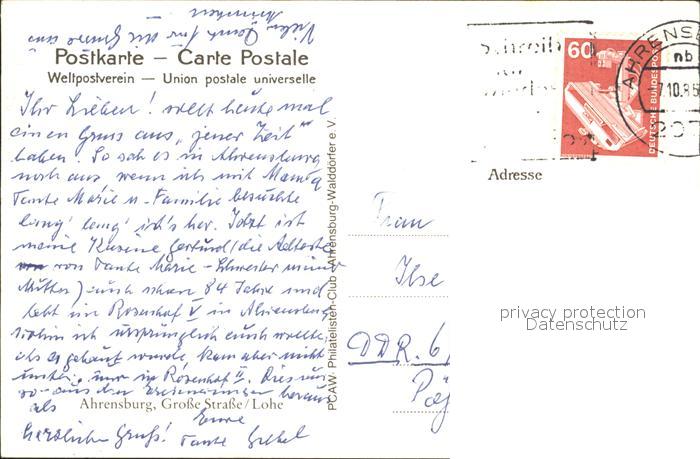 Vielen Dank für
München
Postkarte — Carte Postale
Weltpostverein — Union postale universelle
Ihr Lieben! sollt heute mal
einen Gruss aus „jener Zeit"
haben. So sah es in Ahrensburg
noch aus wenn ich mit Mama
Tante Marie u. Familie besuchte
lang' lang' ist's her. Jetzt ist
meine Kusine Gertrud (die Aelteste
von Tante Marie - Schwester meiner
Mutter) auch schon 84 Jahre und
lebt im Rosenhof V in Ahrensburg
wohin ich ursprünglich auch wollte,
als es gebaut wurde, kam aber nicht
nur in Rosenhof II. Dies nur
so aus den Erinnerungen heraus
als
Ahrensburg, Große Straße/Lohe
Eure
herzlichen Gruß! Tante
PCAW. Philatelisten-Club Ahrensburg-Walddörfer e.V.
Schreib
60
DEUTSCHE BUNDESPOST
AHRENSB
nb
7.10.85
207
Adresse
Frau
Ilse
DDR. 6
privacy protection
Datenschutz